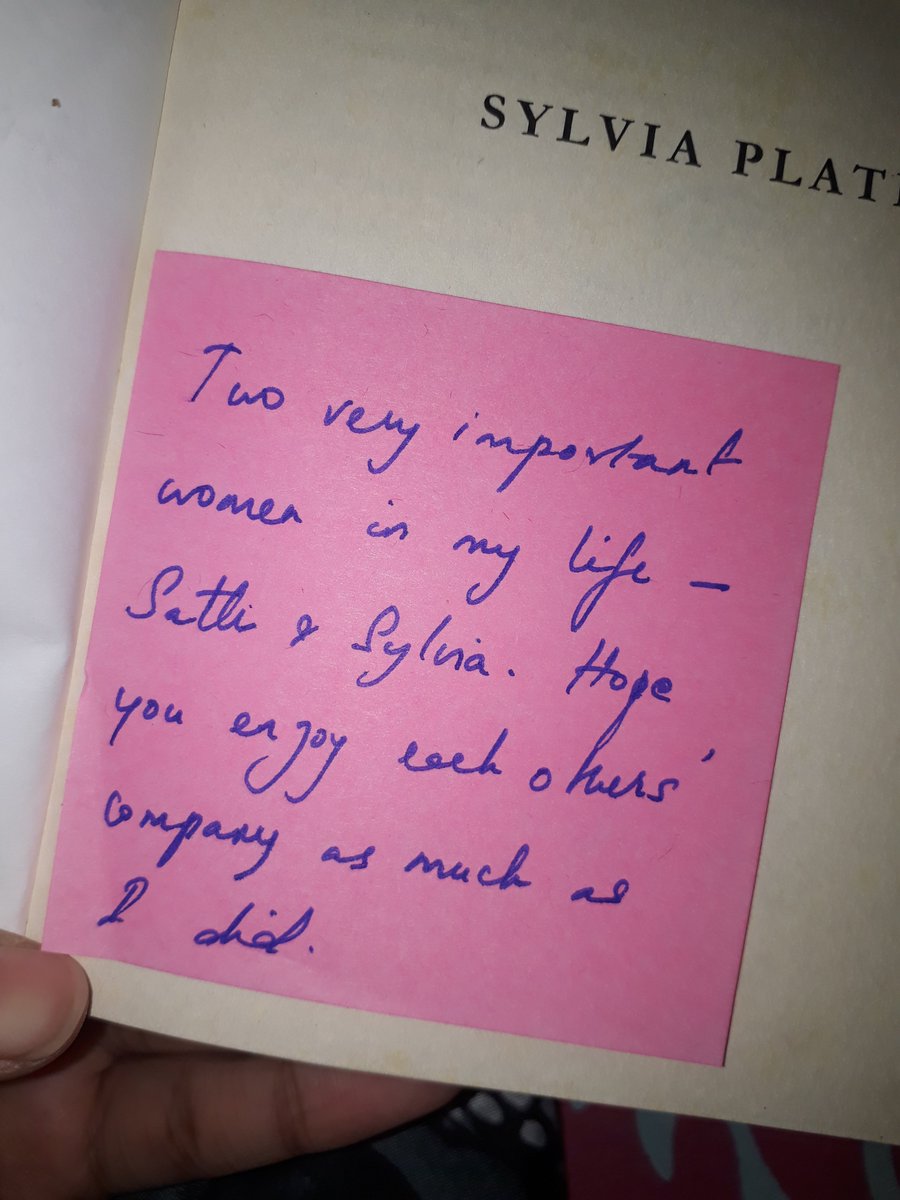 SYLVIA PLATH
Two very important
women in my life –
Satli & Sylvia. Hope
you enjoy each others'
company as much as
I did.